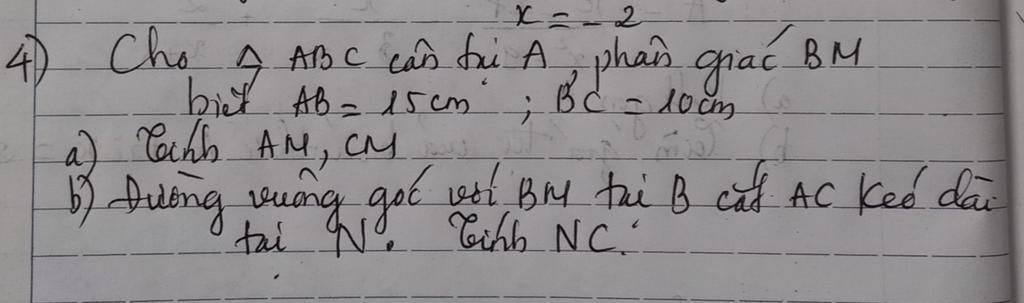 x = - 2
4) Cho Δ ABC cân tại A, phân giác BM
biết AB = 15cm ; BC = 10cm
a) Tính AM, CM
b) Đường vuông góc với BM tại B cắt AC kéo dài
tại N. Tính NC.